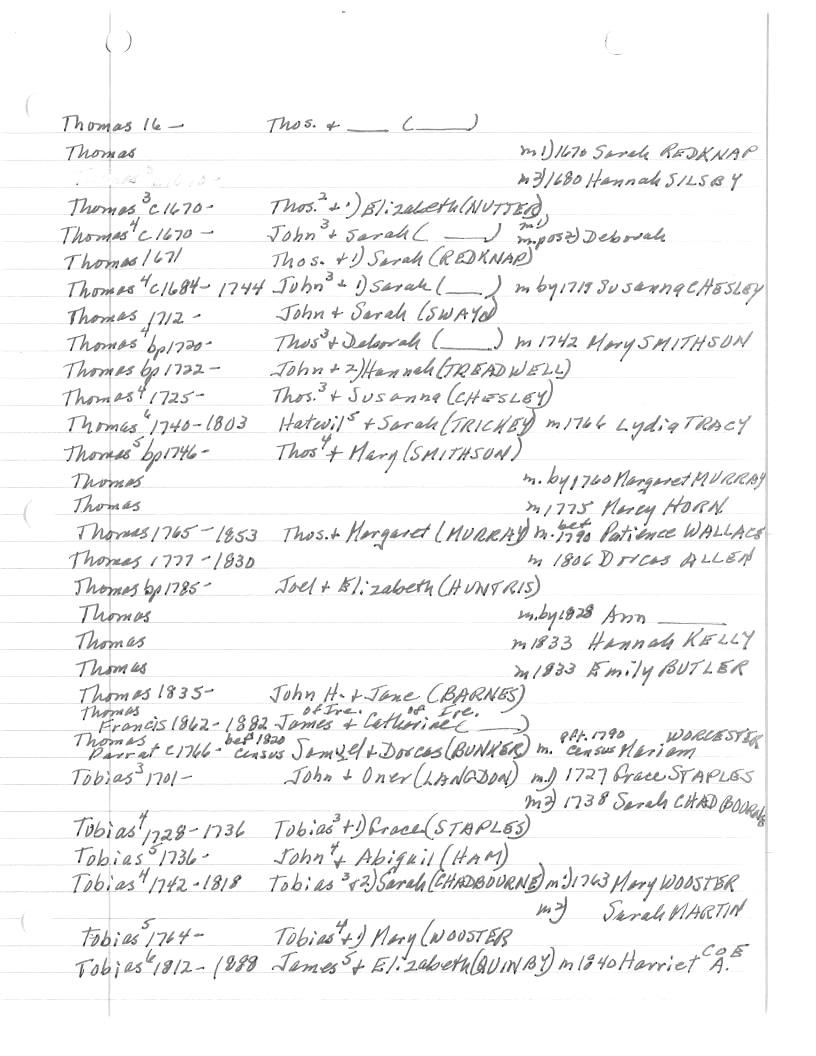 Thomas 16 – Thos. + ___ (____)
Thomas m 1) 1670 Sarah REDKNAP
m 2) 1680 Hannah SILSBY
Thomas³ c1670- Thos.² + 1) Elizabeth (NUTTER)
Thomas⁴ c1670 – John³ + Sarah (____) m 1) m. pos 2) Deborah
Thomas 1671 Thos. + 1) Sarah (REDKNAP)
Thomas⁴ c1684-1744 John³ + 1) Sarah (____) m by 1719 Susanna CHESLEY
Thomas 1712- John + Sarah (SWAYN)
Thomas⁴ bp1720- Thos³ + Deborah (____) m 1742 Mary SMITHSON
Thomas bp 1722- John + 2) Hannah (TREADWELL)
Thomas⁴ 1725- Thos.³ + Susanna (CHESLEY)
Thomas⁶ 1740-1803 Hatevil⁵ + Sarah (TRICKEY) m 1766 Lydia TRACY
Thomas⁵ bp1746- Thos⁴ + Mary (SMITHSON)
Thomas m. by 1760 Margaret MURRAY
Thomas m 1775 Mercy HORN
Thomas 1765-1853 Thos. + Margaret (MURRAY) m. bef 1790 Patience WALLACE
Thomas 1777-1830 m 1806 Dorcas ALLEN
Thomas bp1785- Joel + Elizabeth (HUNTRIS)
Thomas m. by 1828 Ann ____
Thomas m 1833 Hannah KELLY
Thomas m 1833 Emily BUTLER
Thomas 1835- John H. + Jane (BARNES)
Thomas of Ire. of Ire.
Francis 1862-1882 James + Catharine (____)
Thomas bef 1820 aft. 1790 WORCESTER
Parrat c1766- census Samuel + Dorcas (BUNKER) m. census Mariam
Tobias³ 1701- John + Oner (LANGDON) m 1) 1727 Grace STAPLES
m 2) 1738 Sarah CHADBOURNE
Tobias⁴ 1728-1736 Tobias³ + 1) Grace (STAPLES)
Tobias⁵ 1736- John⁴ + Abigail (HAM)
Tobias⁴ 1742-1818 Tobias³ + 2) Sarah (CHADBOURNE) m 1) 1763 Mary WOOSTER
m 2) Sarah MARTIN
Tobias⁵ 1764- Tobias⁴ + 1) Mary (WOOSTER
Tobias⁶ 1812-1888 James⁵ + Elizabeth (QUINBY) m 1840 Harriet A. COE